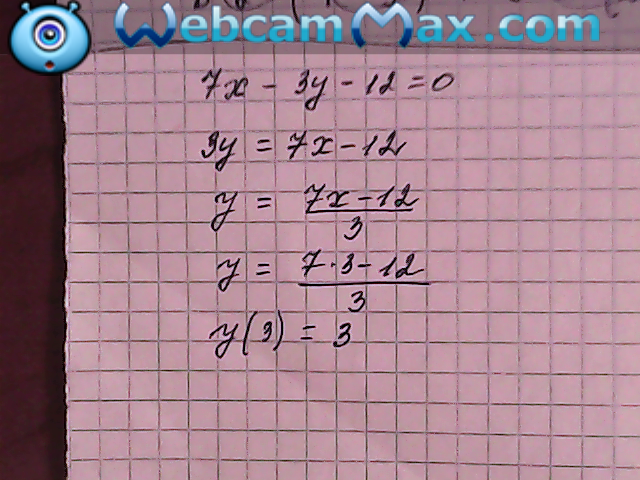 WebcamMax.com
7x - 3y - 12 = 0
3y = 7x - 12
y = \frac{7x - 12}{3}
y = \frac{7 \cdot 3 - 12}{3}
y(3) = 3